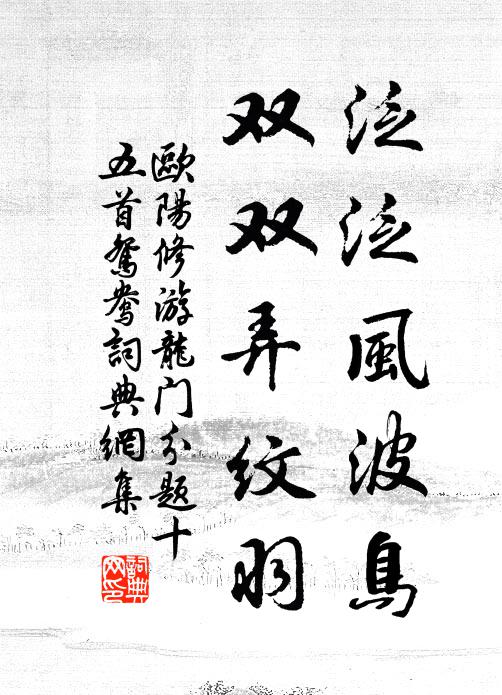 泛泛風波鳥
双双弄纹羽
歐陽修游龍门分題十
五首鴛鴦詞典網集
詞典
网印